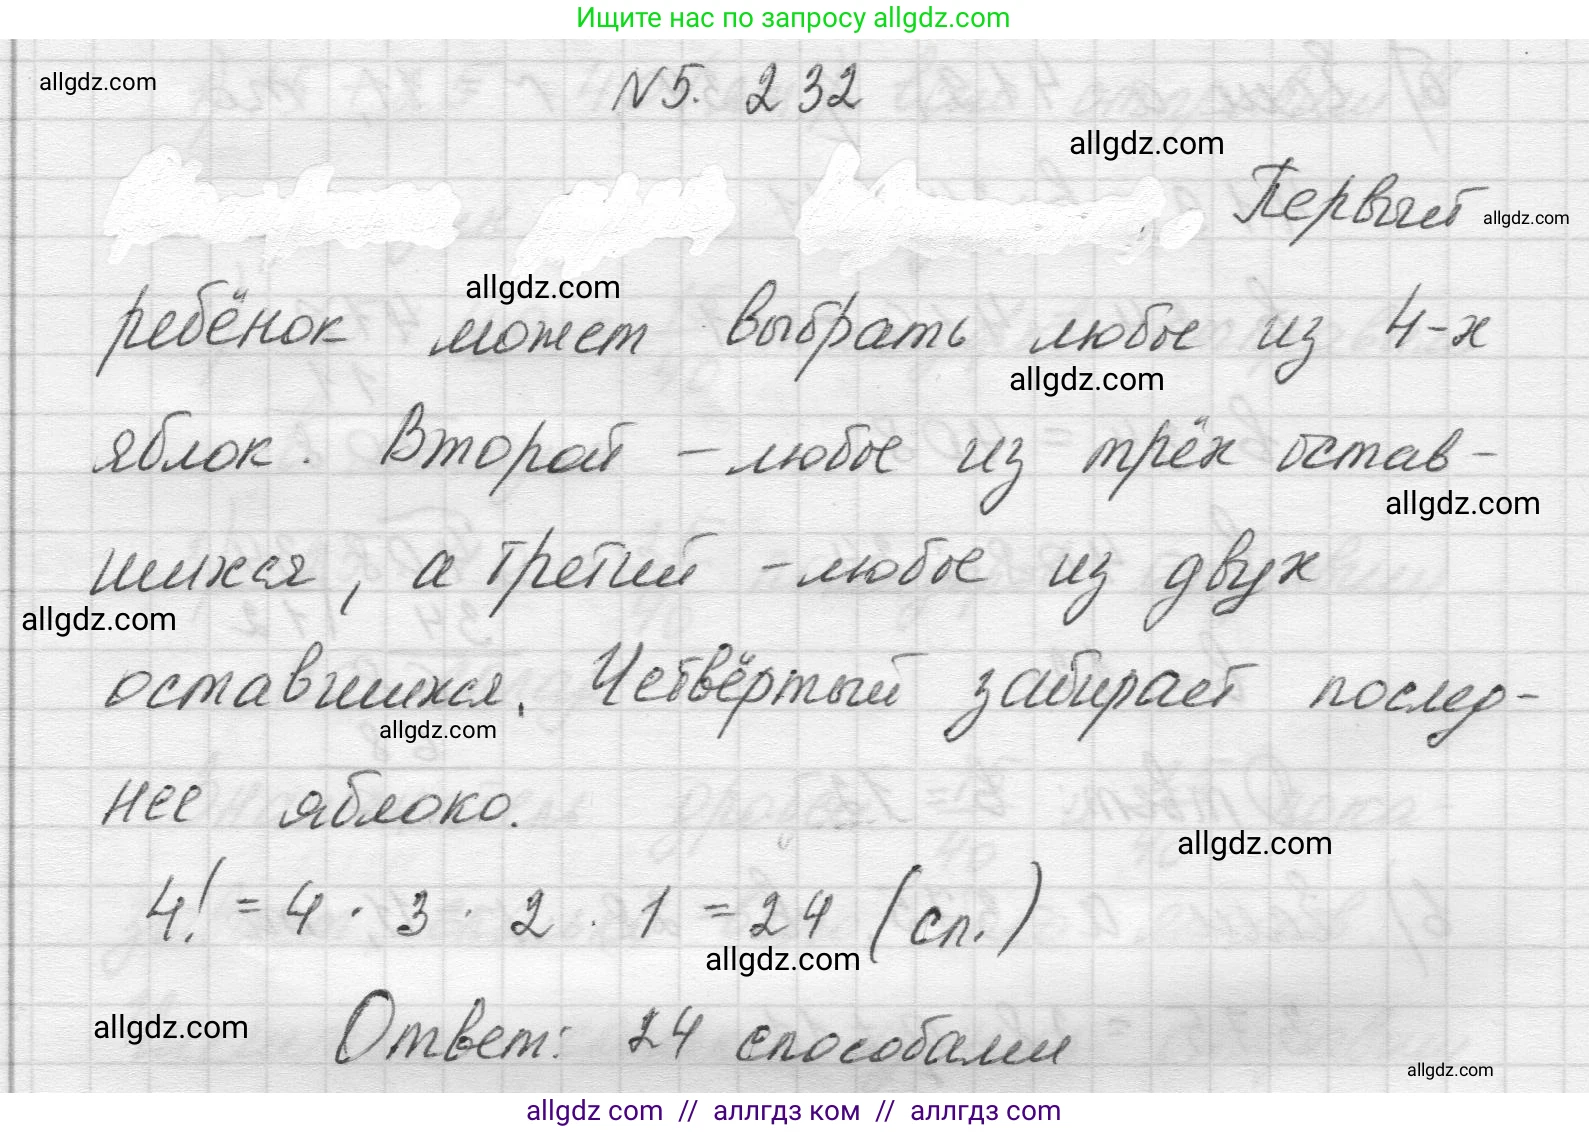 Ищите нас по запросу allgdz.com
allgdz.com
N 5. 232
allgdz.com
Первый
allgdz.com
allgdz.com
ребёнок может выбрать любое из 4-х
allgdz.com
яблок. Второй - любое из трёх остав-
allgdz.com
шихся, а третий - любое из двух
allgdz.com
оставшихся. Четвёртый забирает послед-
allgdz.com
нее яблоко.
allgdz.com
4! = 4 · 3 · 2 · 1 = 24 (сп.)
allgdz.com
allgdz.com
Ответ: 24 способами
allgdz.com
allgdz com // аллгдз ком // аллгдз com